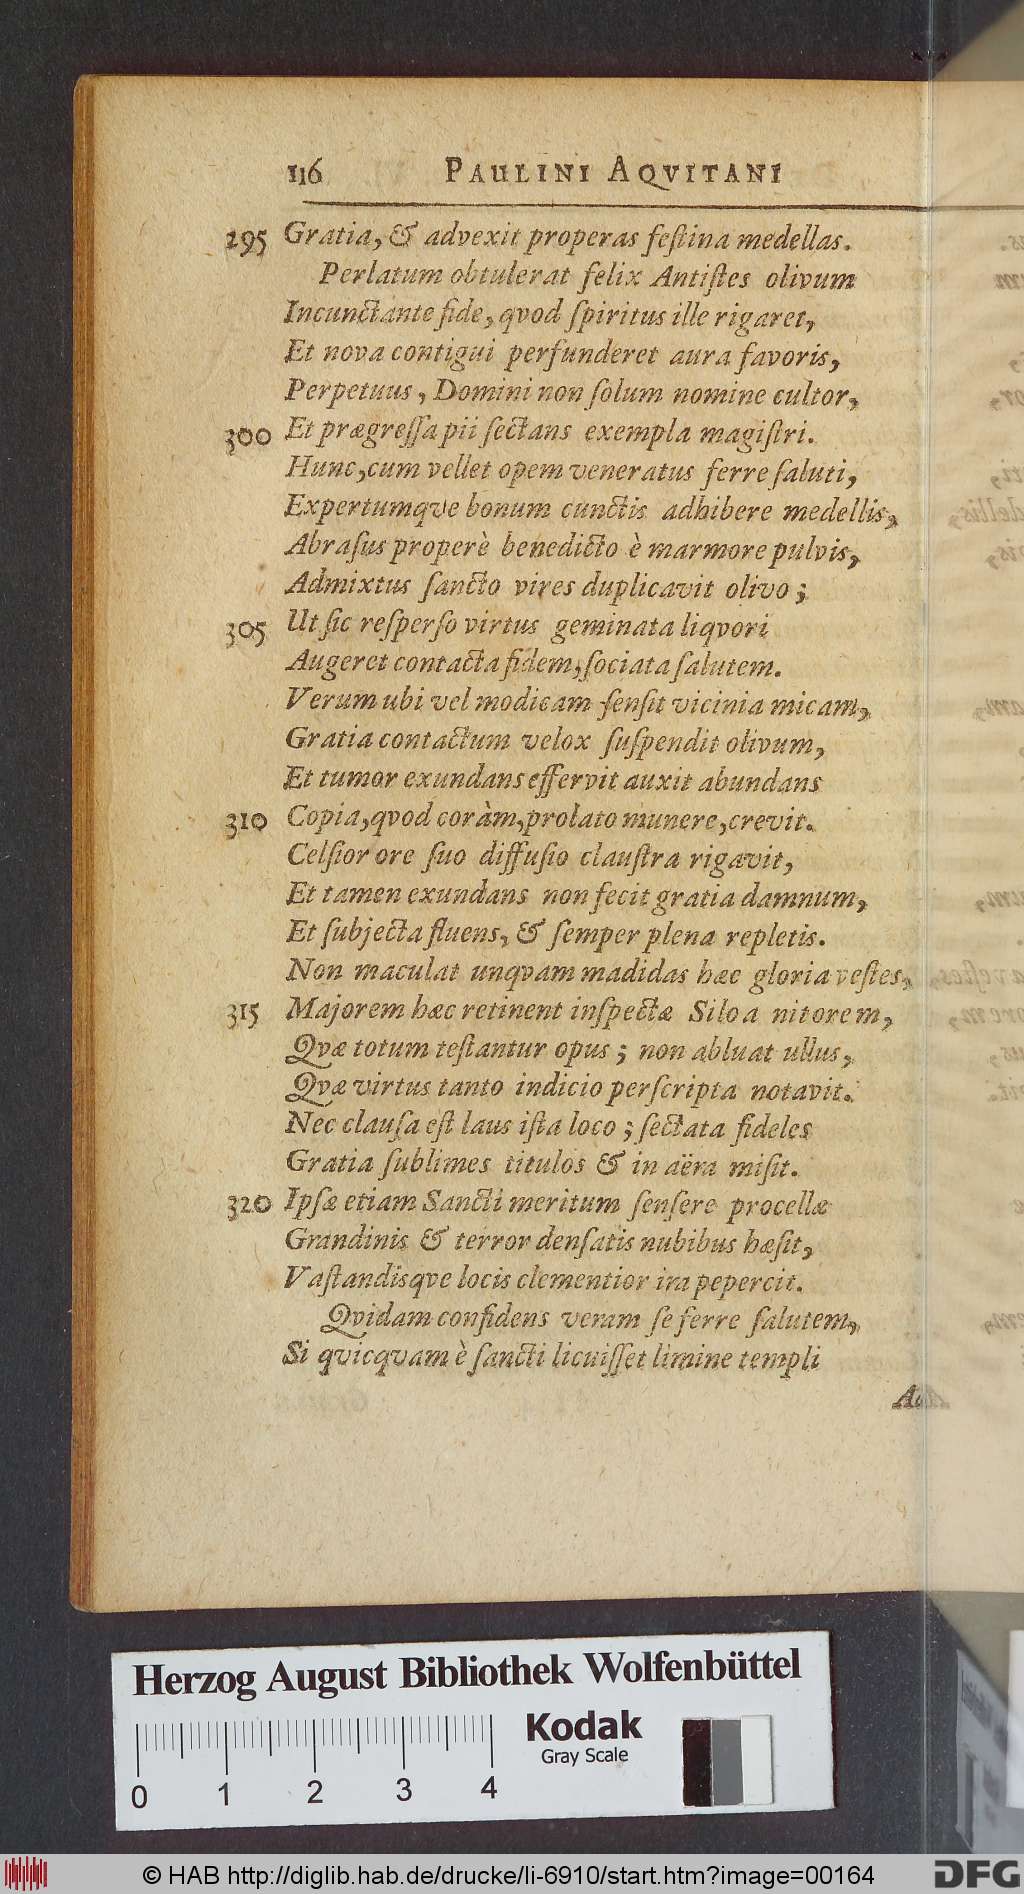 116 PAULINI AQVITANI
295 Gratia, & advexit properas feſtina medellas.
Perlatum obtulerat felix Antiſtes olivum
Incunctante fide, qvod ſpiritus ille rigaret,
Et nova contigui perfunderet aura favoris,
Perpetuus, Domini non ſolum nomine cultor,
300 Et prægreſſa pii ſectans exempla magiſtri.
Hunc, cum vellet opem veneratus ferre ſaluti,
Expertumqve bonum cunctis adhibere medellis,
Abraſus properè benedicto è marmore pulvis,
Admixtus ſancto vires duplicavit olivo;
305 Ut ſic reſperſo virtus geminata liqvori
Augeret contacta fidem, ſociata ſalutem.
Verum ubi vel modicam ſenſit vicinia micam,
Gratia contactum velox ſuſpendit olivum,
Et tumor exundans effervit auxit abundans
310 Copia, qvod coràm, prolato munere, crevit.
Celſior ore ſuo diffuſio clauſtra rigavit,
Et tamen exundans non fecit gratia damnum,
Et ſubjecta fluens, & ſemper plena repletis.
Non maculat unqvam madidas hæc gloria veſtes,
315 Majorem hæc retinent inſpectæ Siloa nitorem,
Qvæ totum teſtantur opus; non abluat ullus,
Qvæ virtus tanto indicio perſcripta notavit.
Nec clauſa eſt laus iſta loco; ſectata fideles
Gratia ſublimes titulos & in aëra miſit.
320 Ipſæ etiam Sancti meritum ſenſere procellæ
Grandinis & terror denſatis nubibus hæſit,
Vaſtandisqve locis clementior ira pepercit.
Qvidam confidens veram ſe ferre ſalutem,
Si qvicqvam è ſancti licuiſſet limine templi
Herzog August Bibliothek Wolfenbüttel
Kodak
Gray Scale
0 1 2 3 4
© HAB http://diglib.hab.de/drucke/li-6910/start.htm?image=00164
DFG